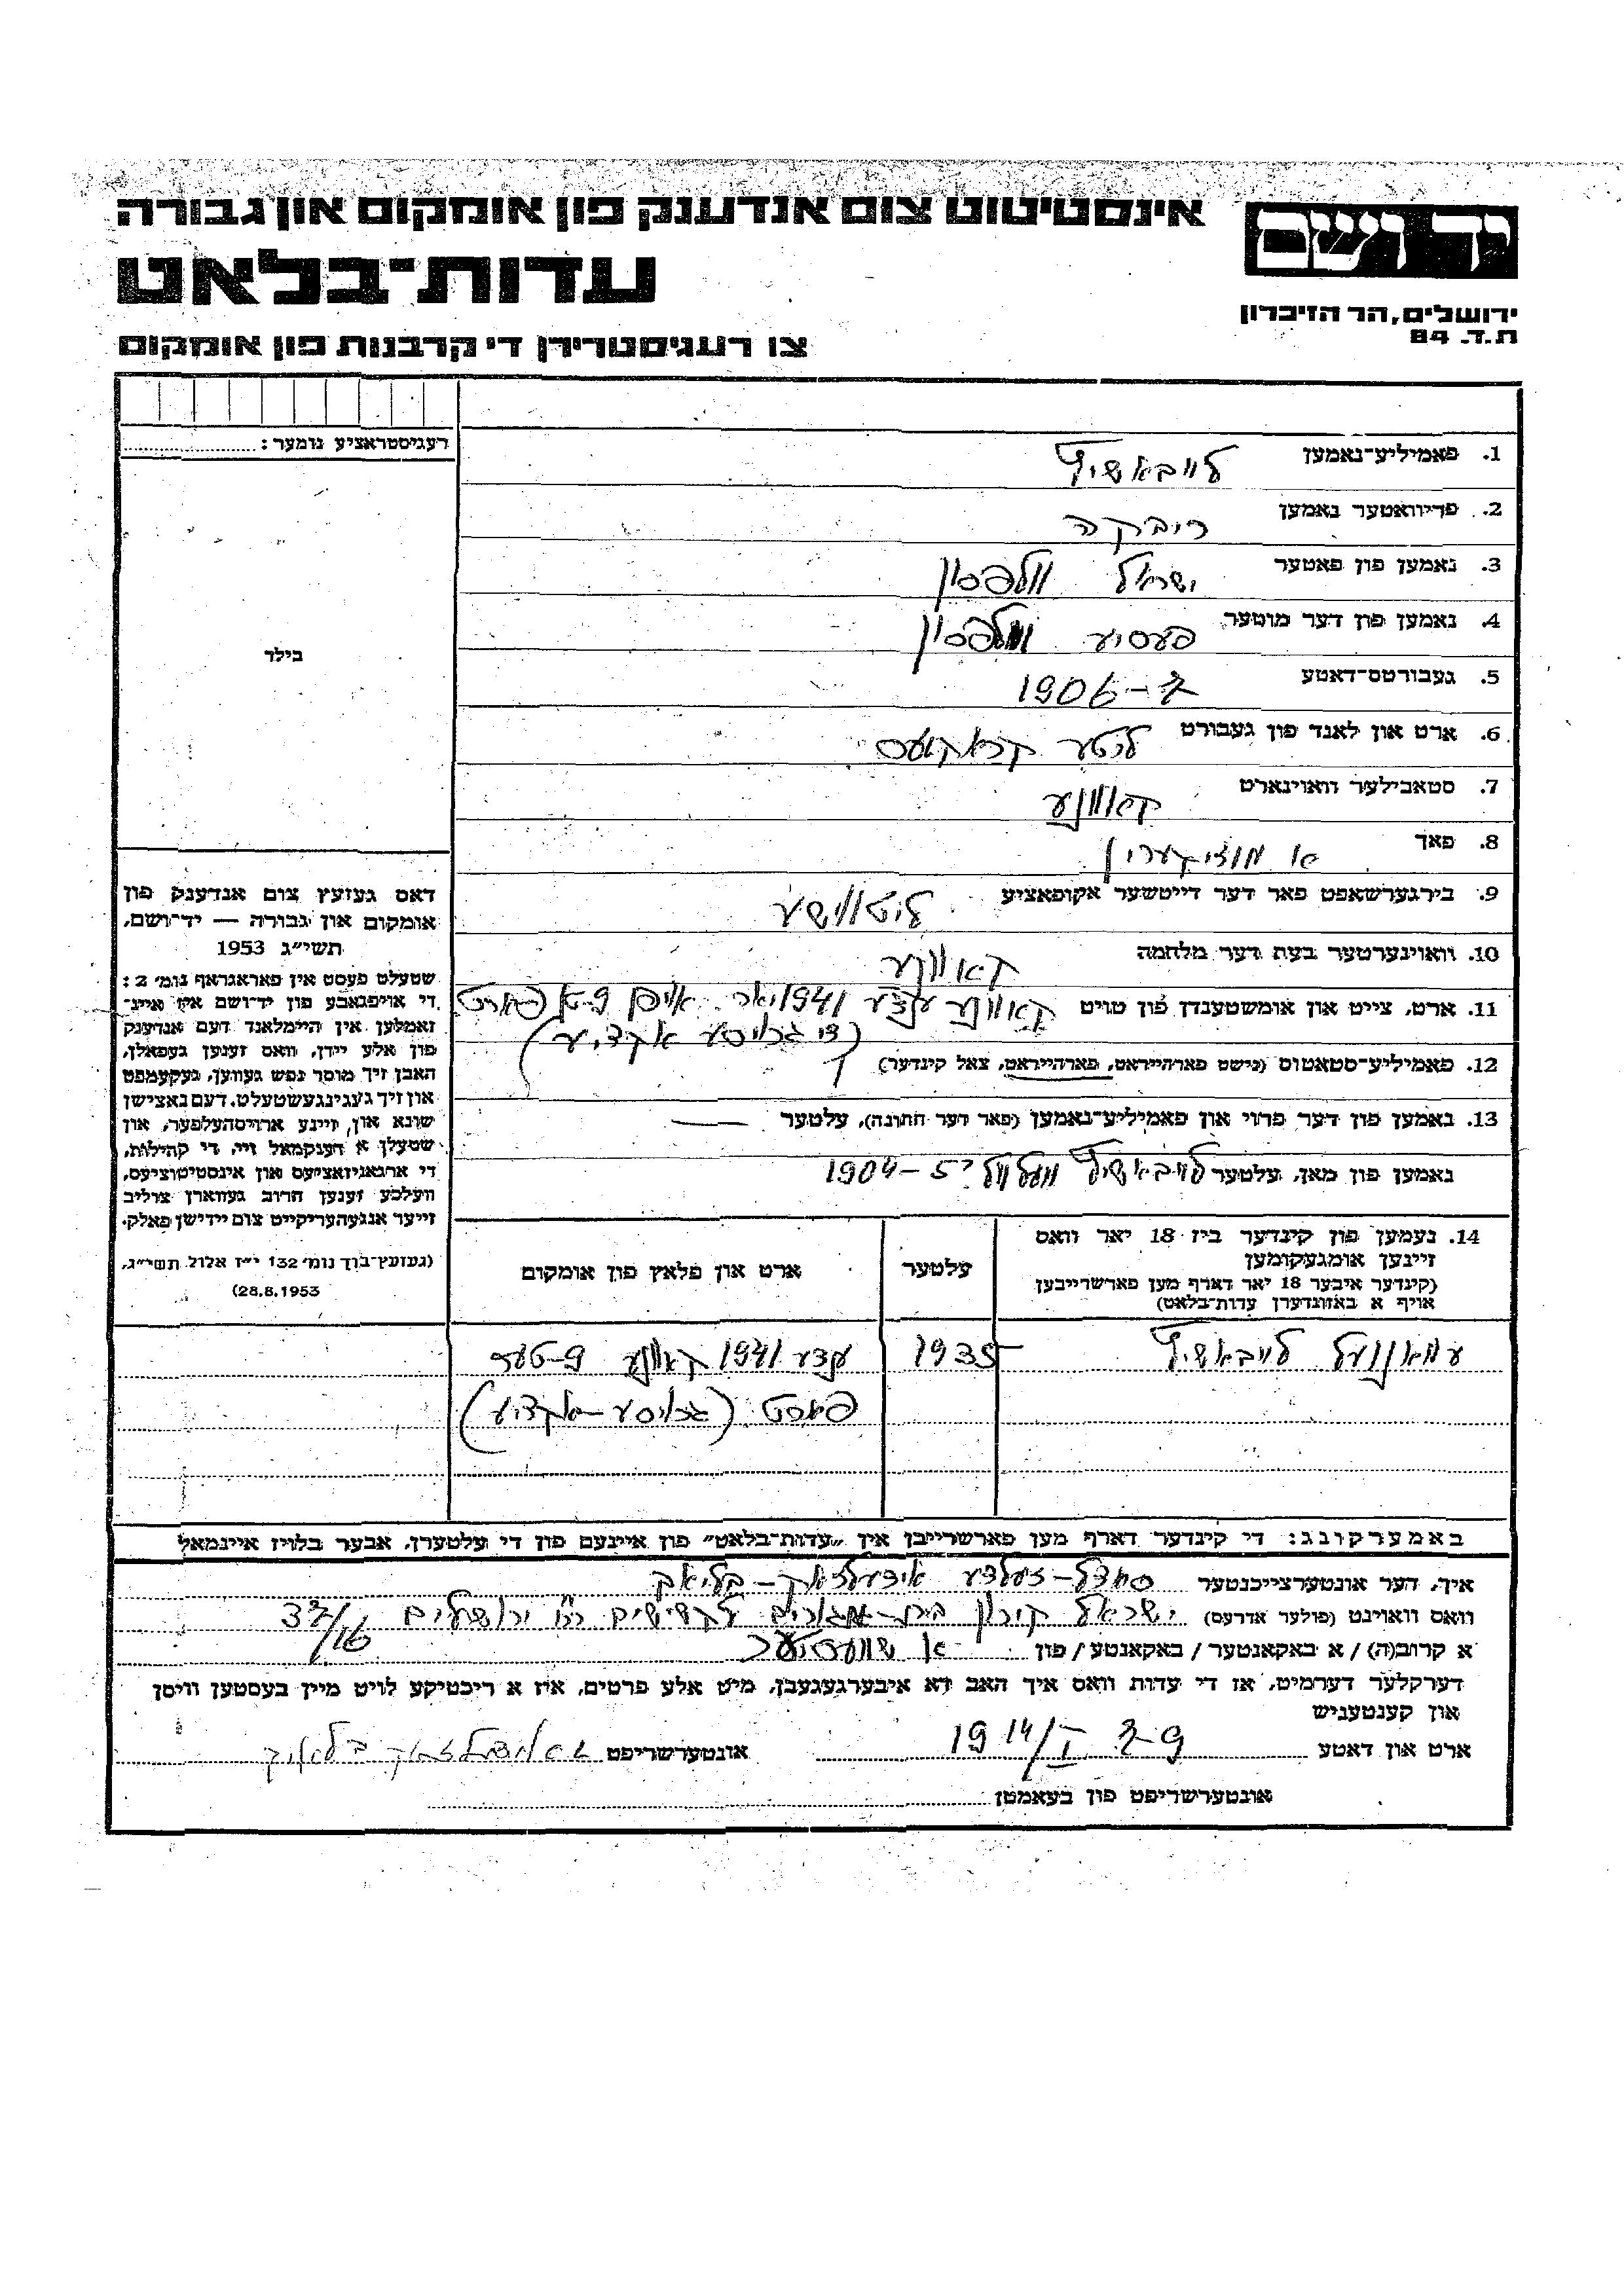 יד ושם
אינסטיטוט צום אנדענק פון אומקום און גבורה
עדות־בלאט
ירושלים, הר הזיכרון
ת.ד. 84
צו רעגיסטרירן די קרבנות פון אומקום
רעגיסטראציע נומער:
בילד
1. פאמיליע־נאמען לייבאשיץ
2. פריוואטער נאמען ריבקה
3. נאמען פון פאטער ישראל וולפסון
4. נאמען פון דער מוטער פעסיע וולפסון
5. געבורטס־דאטע 1906-7
6. ארט און לאנד פון געבורט ליטע
7. סטאבילער וואוינארט קאוונע
8. פאך א מוזיקערין
9. בירגערשאפט פאר דער דייטשער אקופאציע ליטווישע
10. וואוינערטער בעת דער מלחמה קאוונע
11. ארט, צייט און אומשטענדן פון טויט קאוונע ענדע 1941 יאר אויפן 9-טן פארט
(די גרויסע אקציע)
12. פאמיליע־סטאטוס (נישט פארהייראט, פארהייראט, צאל קינדער) 1
13. נאמען פון דער פרוי און פאמיליע־נאמען (פאר דער חתונה), עלטער
נאמען פון מאן, עלטער לייבאשיץ וועלוול 1904-5
14. נעמען פון קינדער ביז 18 יאר וואס
זיינען אומגעקומען
(קינדער איבער 18 יאר דארף מען פארשרייבן
אויף א באזונדערן עדות־בלאט)
עלטער
ארט און פלאץ פון אומקום
עמאנועל לייבאשיץ 1935 ענדע 1941 קאוונע 9-טער
פארט (גרויסע-אקציע)
דאס געזעץ צום אנדענק פון
אומקום און גבורה — יד־ושם,
תשי״ג 1953
שטעלט פעסט אין פאראגראף נומ׳ 2:
די אויפגאבע פון יד־ושם איז איינ־
זאמלען אין היימלאנד דעם אנדענק
פון אלע יידן, וואס זענען געפאלן,
האבן זיך מוסר נפש געווען, געקעמפט
און זיך געגינגעשטעלט. דעם נאצישן
שונא און, זיינע ארויסהעלפער, און
שטעלן א דענקמאל זיי, די קהילות,
די ארגאניזאציעס און אינסטיטוציעס,
וועלכע זענען חרוב געווארן צוליב
זייער אנגעהעריקייט צום יידישן פאלק.
(געזעץ־בוך נומ׳ 132 י״ז אלול תשי״ג,
28.8.1953)
באמערקונג: די קינדער דארף מען פארשרייבן אין „עדות־בלאט״ פון איינעם פון די עלטערן, אבער בלויז איינמאל
איך, דער אונטערצייכנטער
וואס וואוינט (פולער אדרעס) ישראל קירון בית-מגורים לקשישים רח׳ ירושלים 37/16
א קרוב(ה) / א באקאנטער / באקאנטע / פון א שוועסטער
דערקלער דערמיט, אז די עדות וואס איך האב דא איבערגעגעבן, מיט אלע פרטים, איז א ריכטיקע לויט מיין בעסטען וויסן
און קענטעניש
ארט און דאטע 19 14/I 97 אונטערשריפט
אונטערשריפט פון בעאמטן